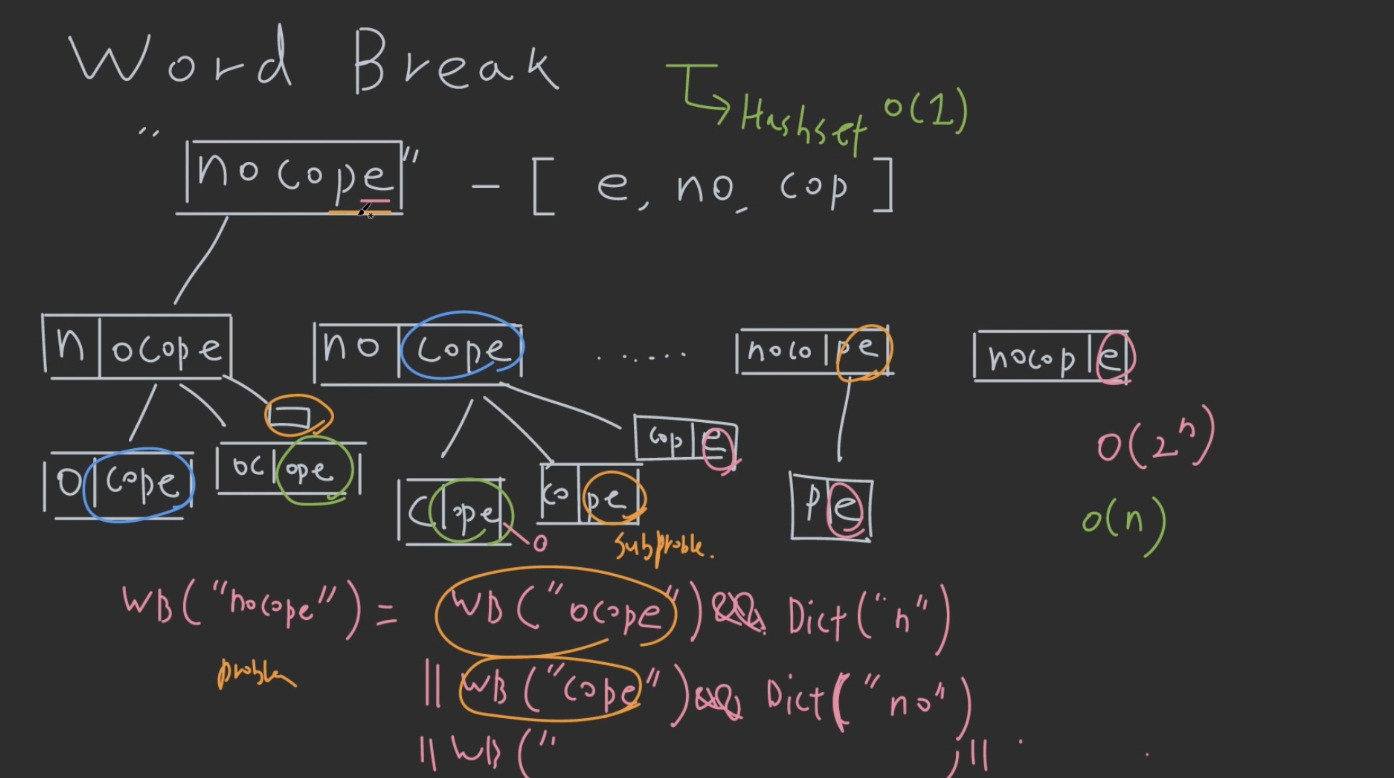 Word Break
Hashset O(1)
"nocope" - [ e, no, cop ]
n|ocope
no|cope
......
noco|pe
nocop|e
o|cope
oc|ope
c|ope
co|pe
cop|e
p|e
O(2ⁿ)
O(n)
o
subproble.
WB("nocope") = WB("ocope") && Dict("n")
problem
|| WB("cope") && Dict("no")
|| WB("
) ||